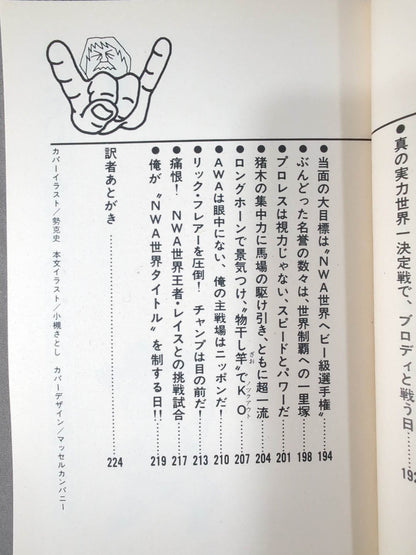 ●真の実力世界一決定戦で、ブロディと戦う日 192
●当面の大目標は〝NWA世界ヘビー級選手権〟 194
●ぶんどった名誉の数々は、世界制覇への一里塚 198
●プロレスは視力じゃない、スピードとパワーだ 201
●猪木の集中力に馬場の駆け引き、ともに超一流 204
●ロングホーンで景気つけ、〝物干し竿〟でKO 207
ざお
ノックアウト
●AWAは眼中にない、俺の主戦場はニッポンだ! 210
●リック・フレアーを圧倒! チャンプは目の前だ! 213
●痛恨! NWA世界王者・レイスとの挑戦試合 217
●俺が〝NWA世界タイトル〟を制する日!! 219
訳者あとがき 224
カバーイラスト/勢克史 本文イラスト/小槻さとし カバーデザイン/マッセルカンパニー